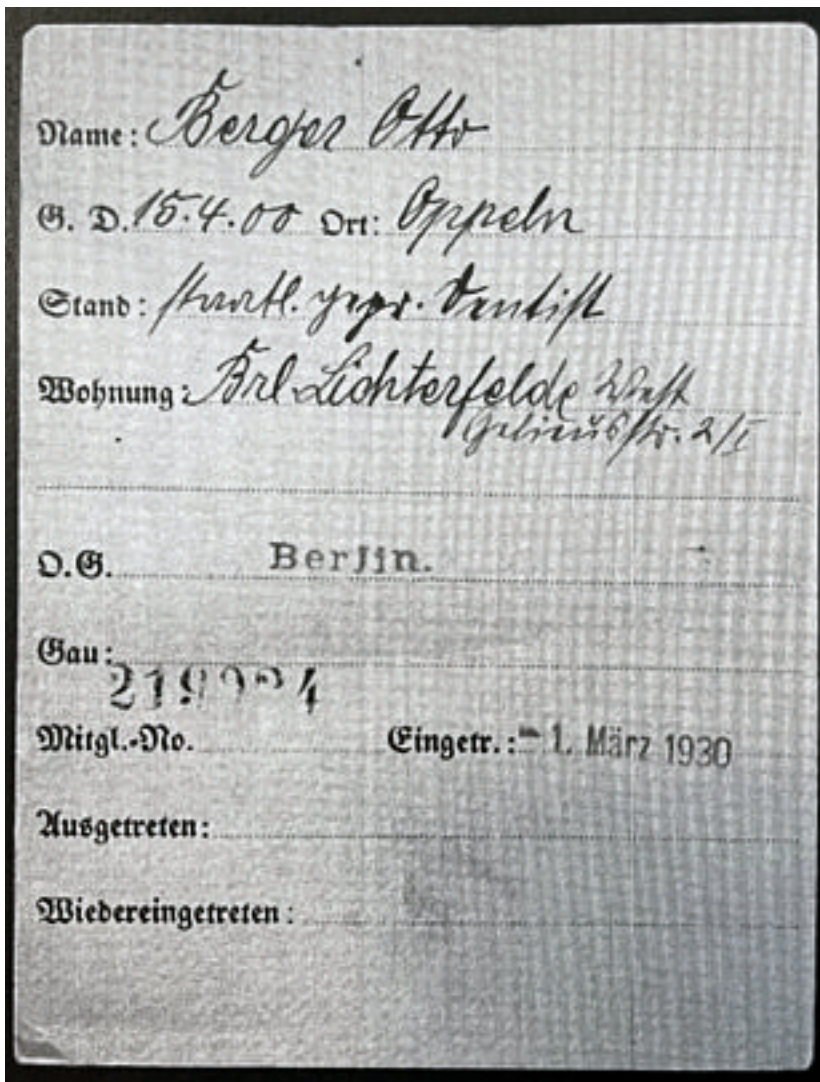 Name: Berger Otto
G. D. 15.4.00 Ort: Oppeln
Stand: staatl. gepr. Dentist
Wohnung: Brl. Lichterfelde West
str. 2/I
O.G. Berlin.
Gau:
Mitgl.-No. Eingetr.: - 1. März 1930
Ausgetreten:
Wiedereingetreten: